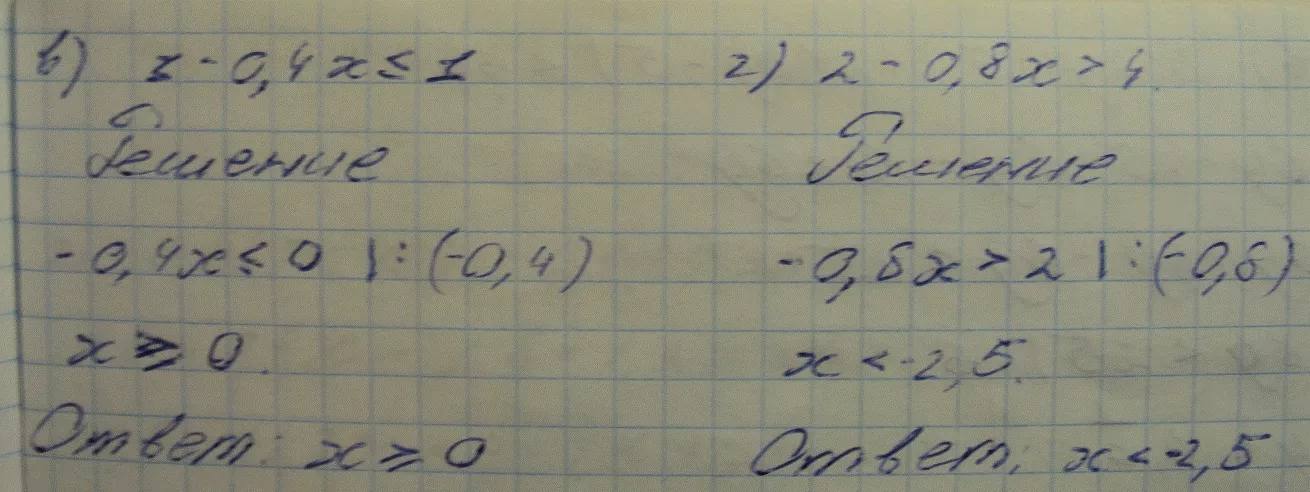 в) 1 - 0,4x ≤ 1
Решение
- 0,4x ≤ 0 | : (-0,4)
x ≥ 0.
Ответ: x ≥ 0
г) 2 - 0,8x > 4.
Решение
- 0,8x > 2 | : (-0,8)
x < -2,5.
Ответ: x < -2,5